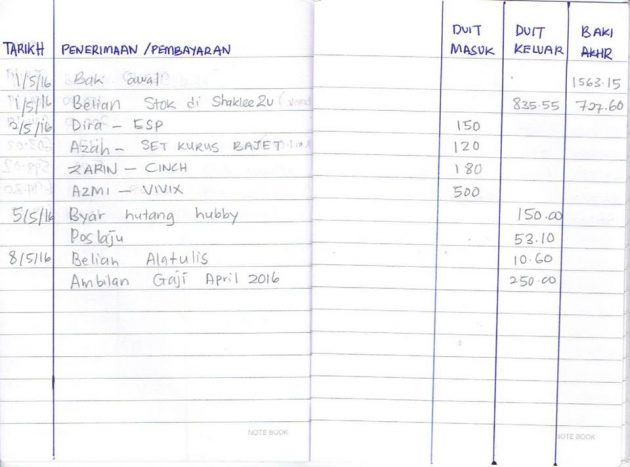 DUIT DUIT BAKI
TARIKH PENERIMAAN /PEMBAYARAN MASUK KELUAR AKHR
1/5/16 Baki awal 1563.15
1/5/16 Belian Stok di Shaklee2u 835.55 727.60
2/5/16 Dira - ESP 150
Azah - SET KURUS BAJET 120
ZARIN - CINCH 180
AZMI - VIVIX 500
5/5/16 Byar hutang hubby 150.00
Poslaju 53.10
8/5/16 Belian Alatulis 10.60
Ambilan Gaji April 2016 250.00
NOTE BOOK NOTE BOOK